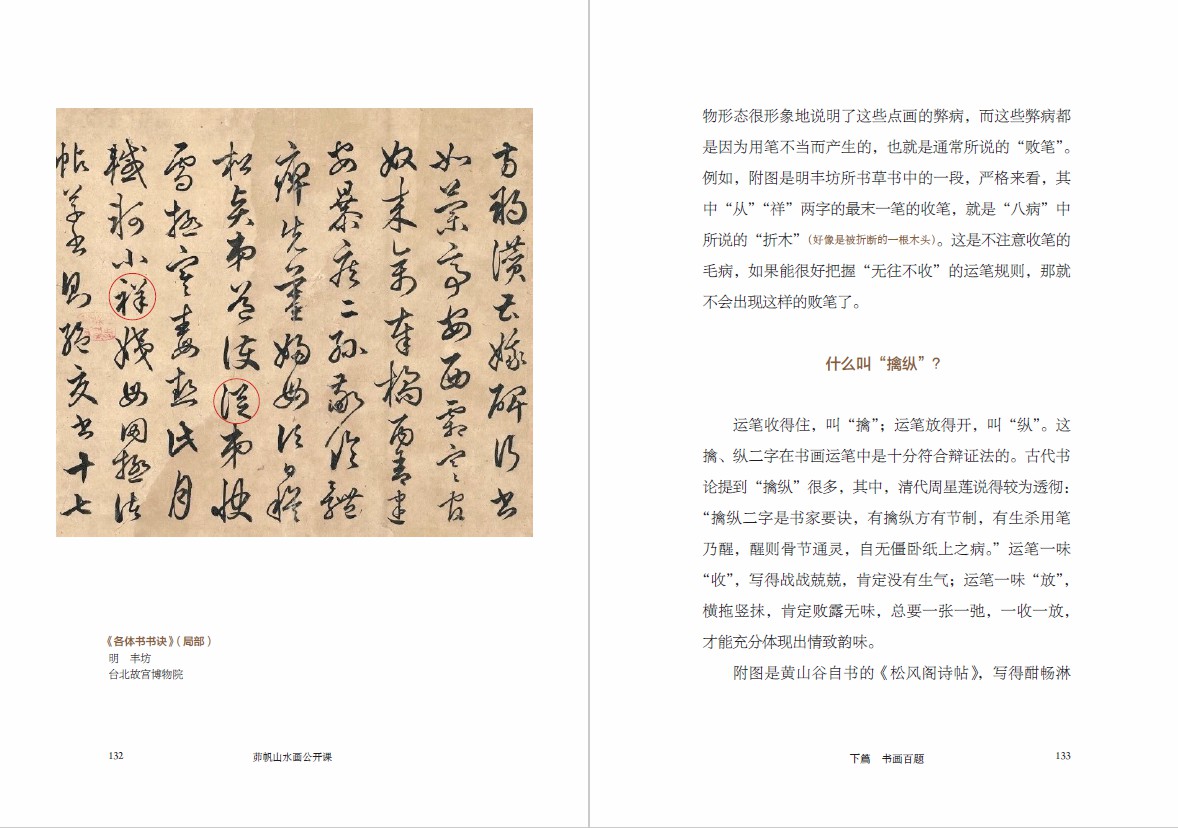 方朔讚娥碑行书
如蘭亭安西霜寒
奴来禽奉橘雨晴
安暴疾二孙
痺先靈
松从弟
雪極寒此月
小祥姨母
帖草书則絕交书十七
《各体书书诀》（局部）
明　丰坊
台北故宫博物院
132
茆帆山水画公开课
物形态很形象地说明了这些点画的弊病，而这些弊病都
是因为用笔不当而产生的，也就是通常所说的“败笔”。
例如，附图是明丰坊所书草书中的一段，严格来看，其
中“从”“祥”两字的最末一笔的收笔，就是“八病”中
所说的“折木”（好像是被折断的一根木头）。这是不注意收笔的
毛病，如果能很好把握“无往不收”的运笔规则，那就
不会出现这样的败笔了。
什么叫“擒纵”？
运笔收得住，叫“擒”；运笔放得开，叫“纵”。这
擒、纵二字在书画运笔中是十分符合辩证法的。古代书
论提到“擒纵”很多，其中，清代周星莲说得较为透彻：
“擒纵二字是书家要诀，有擒纵方有节制，有生杀用笔
乃醒，醒则骨节通灵，自无僵卧纸上之病。”运笔一味
“收”，写得战战兢兢，肯定没有生气；运笔一味“放”，
横拖竖抹，肯定败露无味，总要一张一弛，一收一放，
才能充分体现出情致韵味。
附图是黄山谷自书的《松风阁诗帖》，写得酣畅淋
下篇　书画百题
133